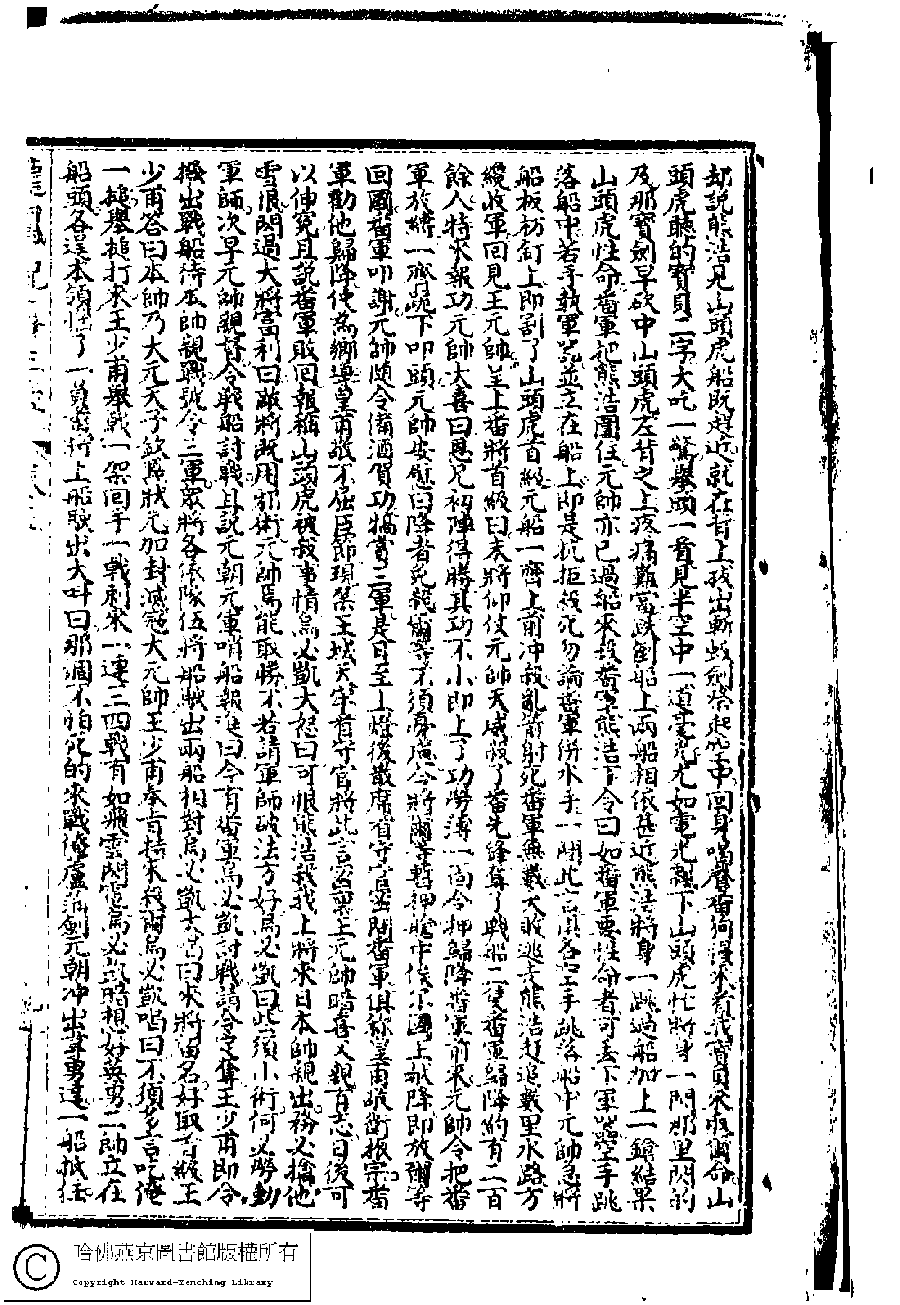 却說熊浩見山頭虎船既趕近就在背上拔出斬蛟劍祭起空中回身喝聲番狗慢來看我寶貝來取你命山
頭虎聽的寶貝二字大吃一驚舉頭一看見半空中一道毫光尤如電光飛下山頭虎忙將身一閃那里閃的
及那寶劍早砍中山頭虎左背之上疼痛難當跌倒船上兩船相依甚近熊浩將身一跳過船加上一鎗結果
山頭虎性命番軍把熊浩圍住元帥亦已過船來殺番軍熊浩下令曰如番軍要性命者可丟下軍器空手跳
落船中若手執軍器並立在船上即是抗拒殺死勿論番軍併水手一聞此言俱各空手跳落船中元帥急將
船板枋釘上即割了山頭虎首級元船一齊上前冲殺亂箭射死番軍無數大敗逃去熊浩趕追數里水路方
纔收軍回見王元帥呈上番將首級曰末將仰仗元帥天威殺了番先鋒奪了戰船二隻番軍歸降約有二百
餘人特來報功元帥大喜曰恩兄初陣得勝其功不小即上了功勞簿一面令押歸降番軍前來元帥令把番
軍放綁一齊跪下叩頭元帥安慰曰降者免殺爾等不須身慌今將爾等暫押艙中俟下國上誠降即放爾等
回國番軍叩謝元帥頒令備酒賀功犒賞三軍是日至上燈後散席有守官密問番軍俱称皇甫敬衛振宗番
軍勸他歸降使為鄉導皇甫敬不屈臣節現禁王城天牢有守官將此言密禀上元帥暗喜父親有志日後可
以伸冤且說番軍敗回報稱山頭虎被殺事情烏必凱大怒曰可恨熊浩殺我上將來日本帥親出務必擒他
雪恨閃過大將富利曰敵將既用邪術元帥焉能取勝不若請軍師破法方好烏必凱曰此須小術何必勞動
軍師次早元帥親督令戰船討戰且說元朝元軍哨船報進曰今有番軍烏必凱討戰請令定奪王少甫即令
撥出戰船待本帥親臨號令三軍眾將各依隊伍將船駛出兩船相對烏必凱大喝曰來將留名好取首級王
少甫答曰本帥乃大元天子欽點狀元加封滅冠大元帥王少甫奉旨特來殺爾烏必凱喝曰不須多言吃俺
一搥舉搥打來王少甫舉戟一架回手一戟刺來一連三四戰有如飛雲閃電烏必凱暗想好英勇二帥立在
船頭各逞本領怪了一員番將上船駛出大叫曰那個不怕死的來戰俺盧 元朝冲出韋勇達一船抵住
哈佛燕京圖書館版權所有
Copyright Harvard-Yenching Library